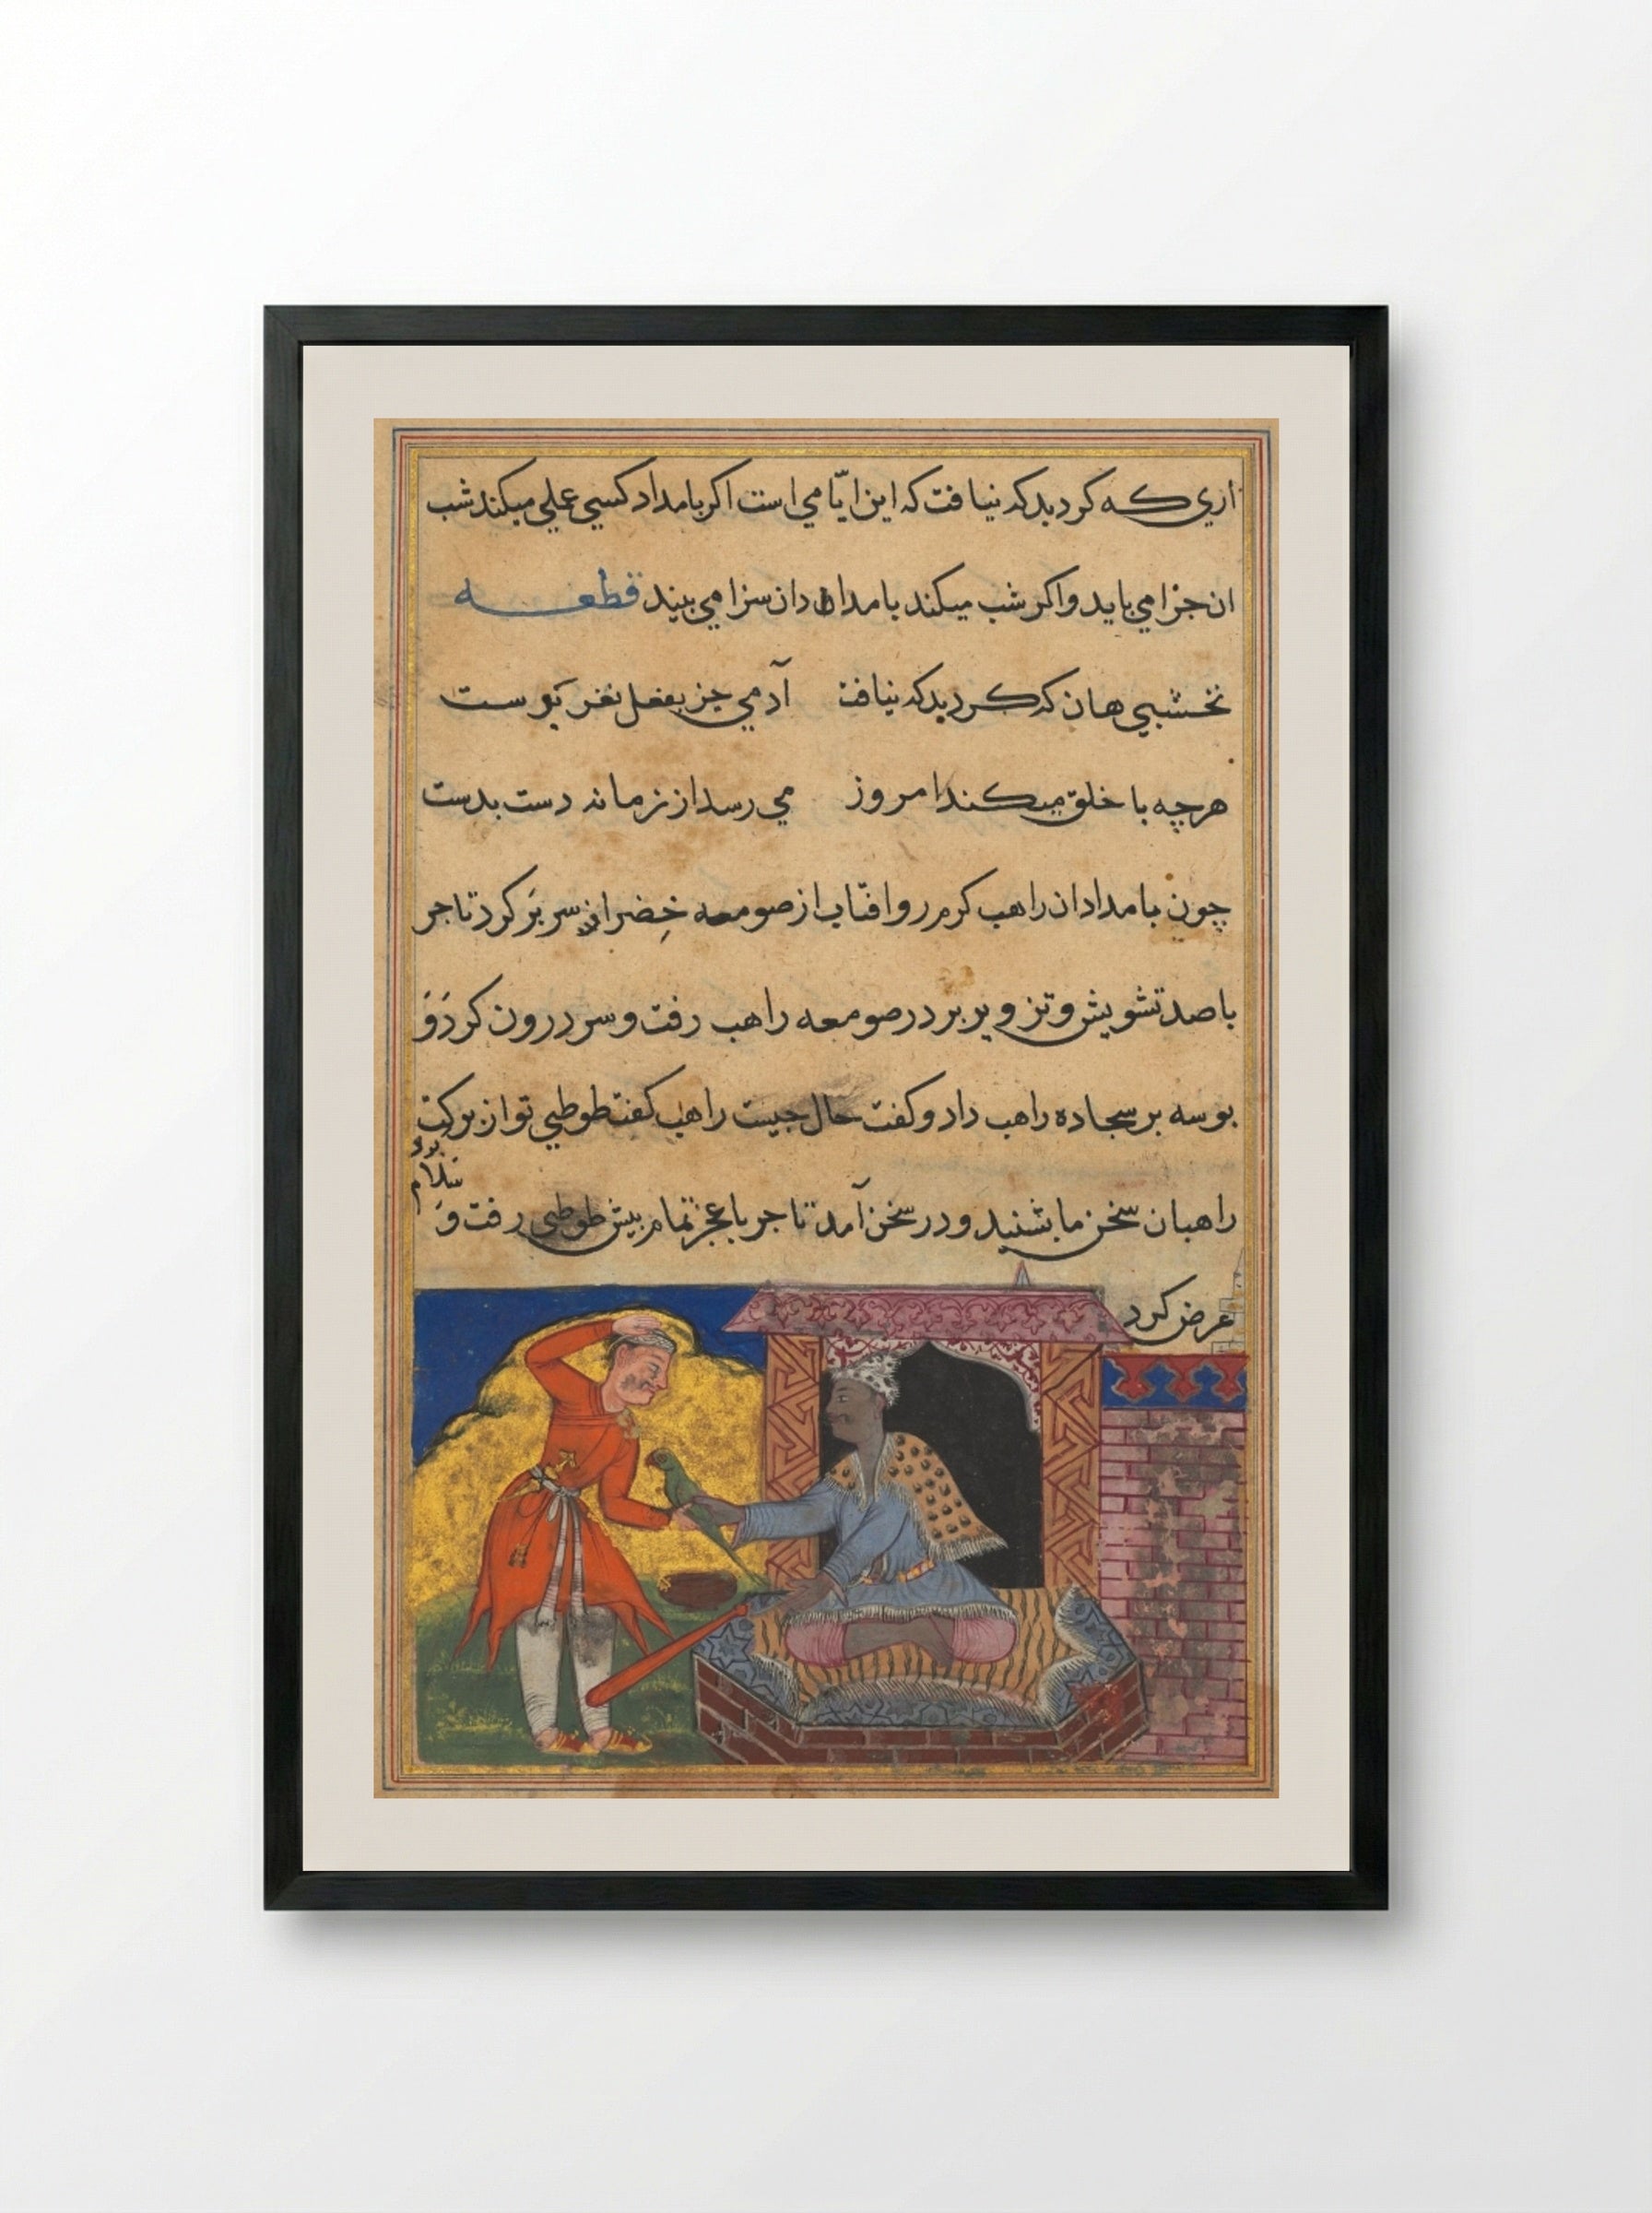 اري که کرد بد که نیافت که این ایّامي است اکر بامداد کسي عملي میکند شب
ان جزا مي یابد واکر شب میکند بامدادان سزا مي بیند قطعه
نخشبي هان که کرد بد که نیافت آدمي جز بفعل نغز نوست
هرچه با خلق میکند امروز مي رسد از زمانه دست بدست
چون بامدادان راهب کرم رو افتاب از صومعه خضراني سر بر کرد تاجر
باصد تشویش و تزویر بر در صومعه راهب رفت و سر درون کرد و
بوسه بر سجاده راهب داد و کفت حال چیست راهب کفت طوطي تو از برکت
راهبان سخن ما بشنید و در سخن آمد تاجر با عجز تمام پیش طوطي رفت و
سلام
عرض کرد